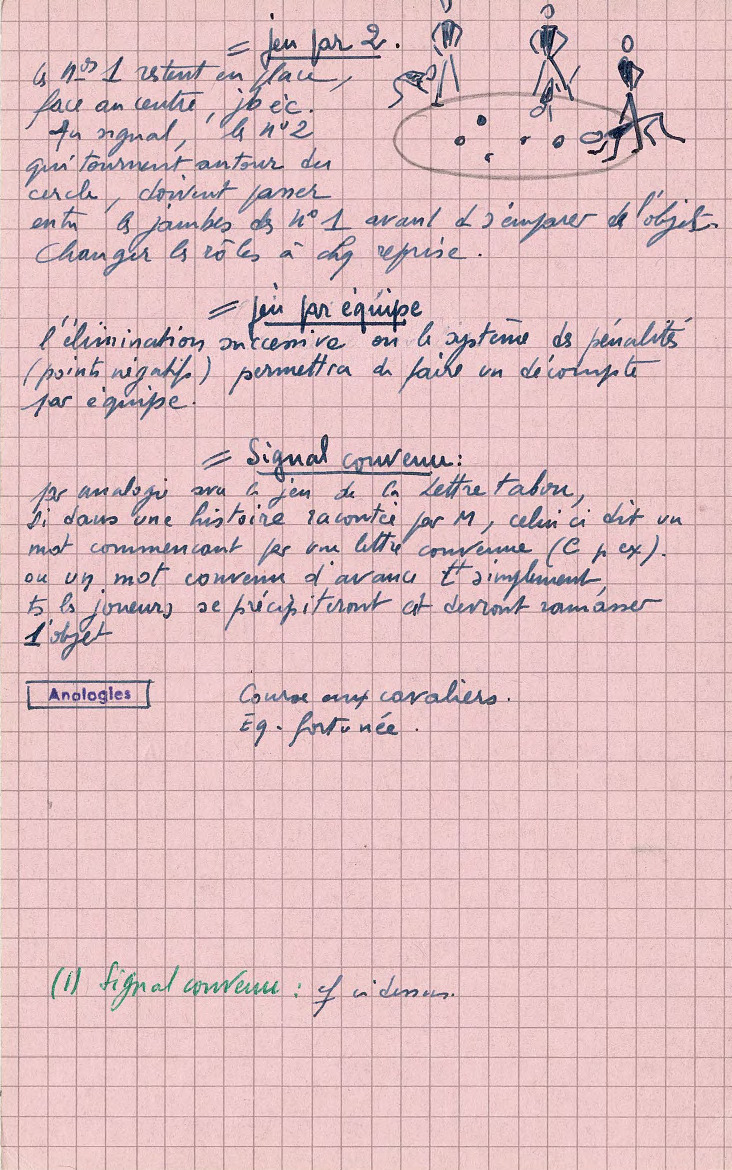 = jeu par 2.
les nos 1 restent en place,
face au centre, jb éc.
Au signal, les n° 2
qui tournent autour du
cercle, doivent passer
entre les jambes des n° 1 avant de s'emparer de l'objet.
Changer les rôles à chq reprise.
= jeu par équipe
l'élimination successive ou le système des pénalités
(points négatifs) permettra de faire un décompte
par équipe.
= Signal convenu:
par analogie avec le jeu de la Lettre tabou,
si dans une histoire racontée par M, celui ci dit un
mot commencant par une lettre convenue (C p ex).
ou un mot convenu d'avance tt simplement
ts les joueurs se précipiteront et devront ramasser
l'objet
Analogies
Course aux cavaliers.
Eq. fortunée.
(1) Signal convenu : cf ci dessus.